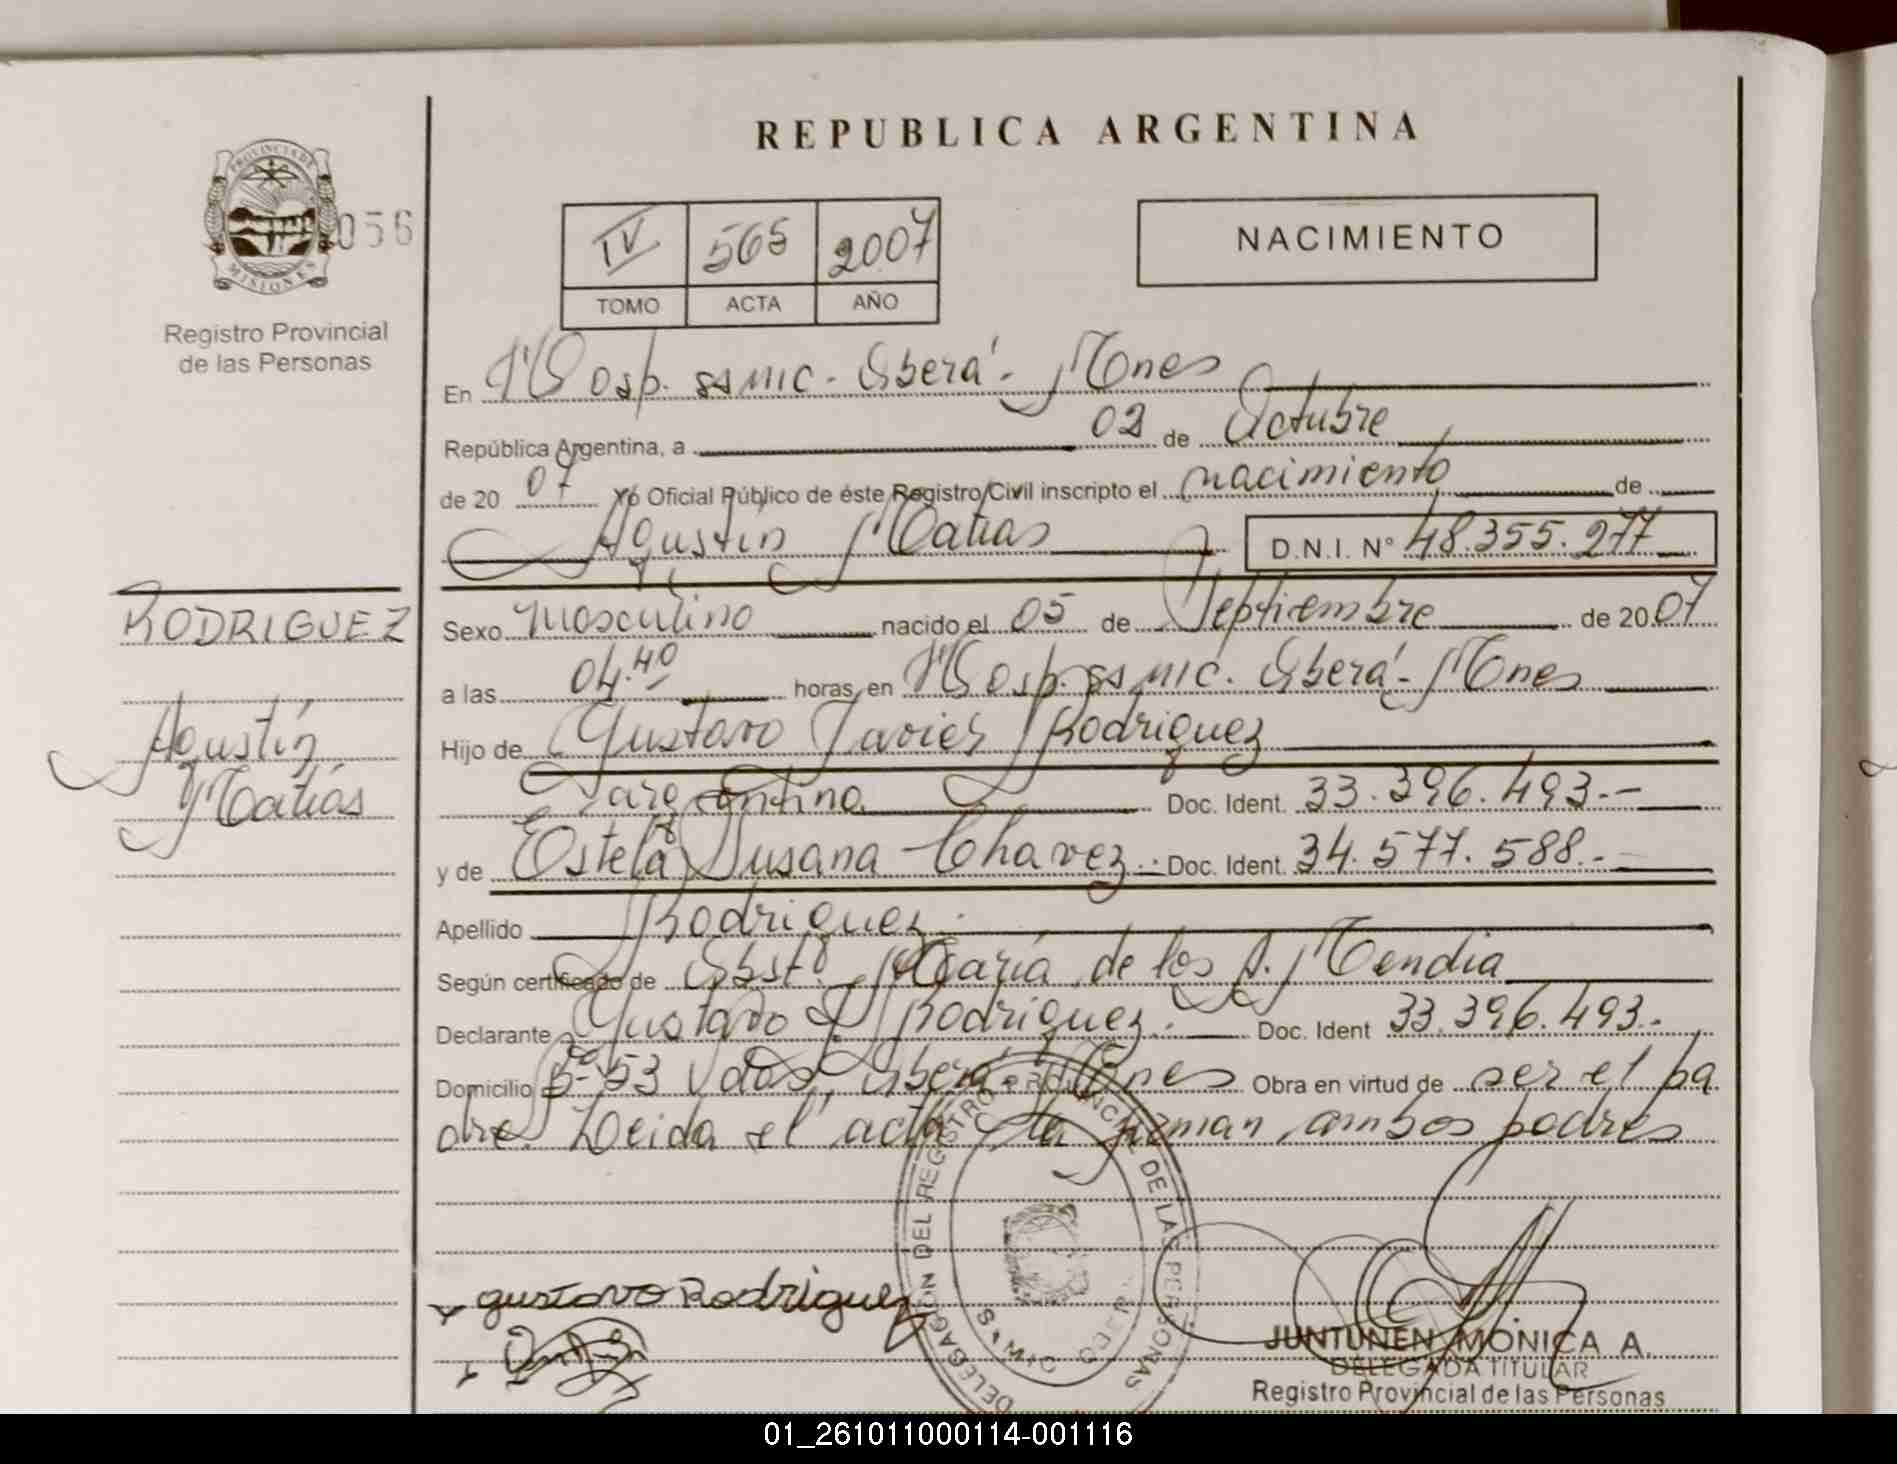 REPUBLICA ARGENTINA
PROVINCIA DE
MISIONES
056
Registro Provincial
de las Personas
IV 565 2007
TOMO ACTA AÑO
NACIMIENTO
En Hosp. SAMIC - Oberá - Mnes
República Argentina, a 02 de Octubre
de 20 07 Yo Oficial Público de éste Registro Civil inscripto el nacimiento de
Agustín Matías D.N.I. N° 48.355.277
RODRIGUEZ
Agustín
Matías
Sexo Masculino nacido el 05 de Septiembre de 2007
a las 04.40 horas, en Hosp. SAMIC. Oberá - Mnes
Hijo de Gustavo Javier Rodriguez
argentino Doc. Ident. 33.396.493.-
y de Estela Susana Chavez Doc. Ident. 34.577.588.-
Apellido Rodriguez.
Según certificado de Obst. María de los A. Mendia
Declarante Gustavo J. Rodriguez. Doc. Ident 33.396.493.-
Domicilio Bº 53 Vdas, Oberá Mnes Obra en virtud de ser el pa
dre. Leida el acta la firman ambos padres
DELEGACION DEL REGISTRO PROVINCIAL DE LAS PERSONAS
gustavo Rodriguez
JUNTUNEN MONICA A.
DELEGADA TITULAR
Registro Provincial de las Personas
01_261011000114-001116